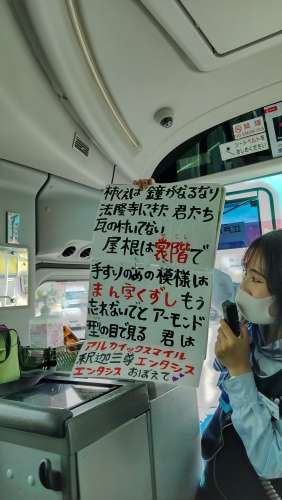 柿くえば 鐘がなるなり
法隆寺にきた 君たち
瓦のけいてない
屋根は裳階で
手すりのあの模様は
まん字くずし もう
忘れないでと アーモンド
型の目で見る 君は
アルカイックスマイル
釈迦三尊 エンタシス
エンタシス おぼえて
禁煙
シートベルトを